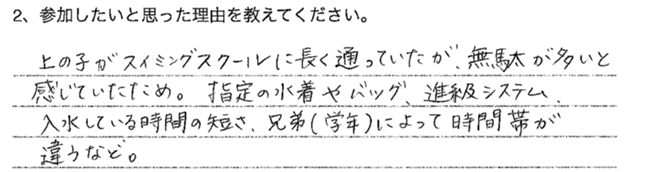 2、参加したいと思った理由を教えてください。
上の子がスイミングスクールに長く通っていたが、無駄が多いと
感じていたため。指定の水着やバッグ、進級システム、
入水している時間の短さ、兄弟(学年)によって時間帯が
違うなど。